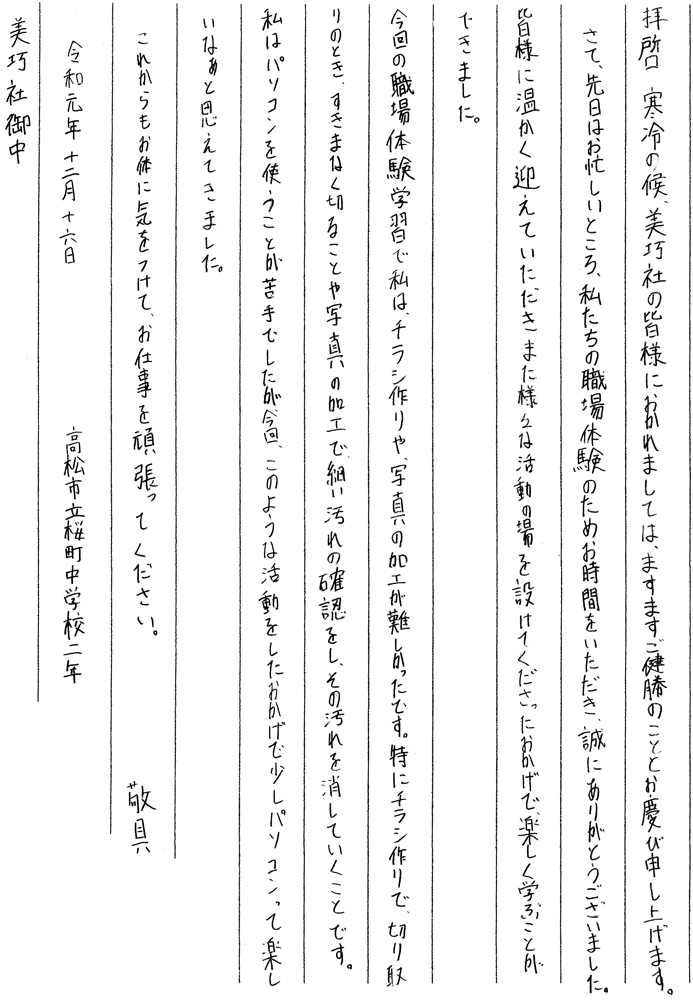 拝啓 寒冷の候、美巧社の皆様におかれましては、ますますご健勝のこととお慶び申し上げます。
さて、先日はお忙しいところ、私たちの職場体験のためお時間をいただき、誠にありがとうございました。
皆様に温かく迎えていただきまた様々な活動の場を設けてくださったおかげで、楽しく学ぶことが
できました。
今回の職場体験学習で私は、チラシ作りや、写真の加工が難しかったです。特にチラシ作りで、切り取
りのとき、すきまなく切ることや写真の加工で、細い汚れの確認をし、その汚れを消していくことです。
私はパソコンを使うことが苦手でしたが、今回、このような活動をしたおかげで少しパソコンって楽し
いなぁと思えてきました。
これからもお体に気をつけて、お仕事を頑張ってください。
敬具
令和元年 十二月十六日
高松市立桜町中学校二年
美巧社御中